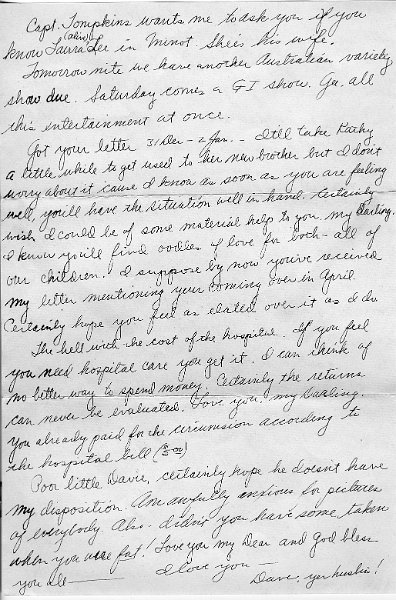 Capt. Tompkins wants me to ask you if you
(alias)
know Laura Lee in Minot. She is his wife.
Tomorrow nite we have another Australian variety
show due. Saturday comes a GI show. Gee, all
this entertainment at once.
Got your letter 31 Dec - 2 Jan. - It'll take Kathy
a little while to get used to her new brother but I don't
worry about it cause I know as soon as you are feeling
well, you'll have the situation well in hand. Certainly
wish I could be of some material help to you my Darling.
I know you'll find oodles of love for both - all of
our children. I suppose by now you've received
my letter mentioning your coming over in April
Certainly hope you feel as elated over it as I do.
The hell with the cost of the hospital. If you feel
you need hospital care you get it. I can think of
no better way to spend money. Certainly the returns
can never be evaluated. Love you, my Darling.
You already paid for the circumsion according to
the hospital bill
Poor little Davie, certainly hope he doesn't have
my disposition. Am awfully anxious for pictures
of everybody. Also - didn't you have some taken
when you were fat! Love you my Dear and god bless
you all — I love you —
Dave, yer husbin!